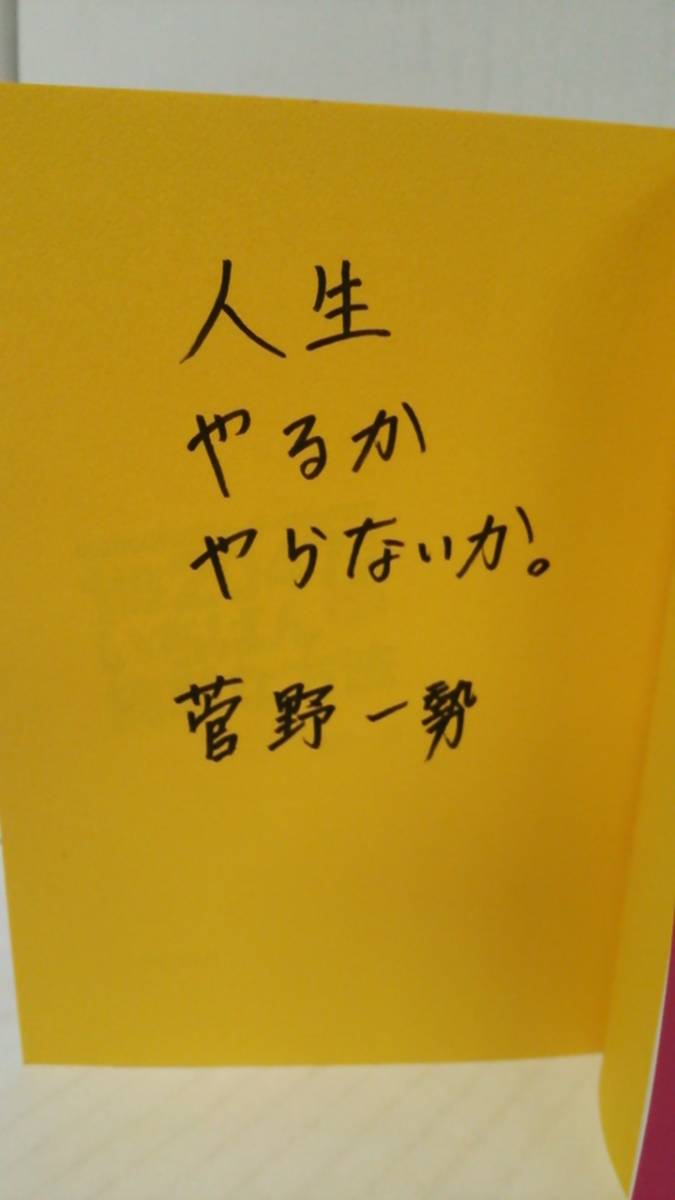 人生
やるか
やらないか。
菅野一勢